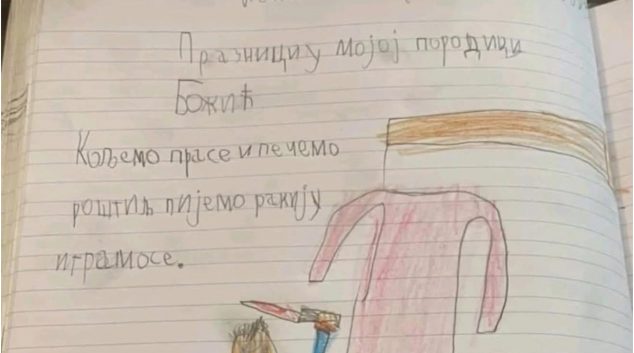 Празници у мојој породици
Божић
Кољемо прасе и печемо
роштиљ пијемо ракију
играмосе.